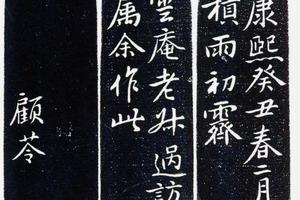 康熙癸丑春二月
積雨初霽
雲庵老叔過訪
屬余作此
顧苓